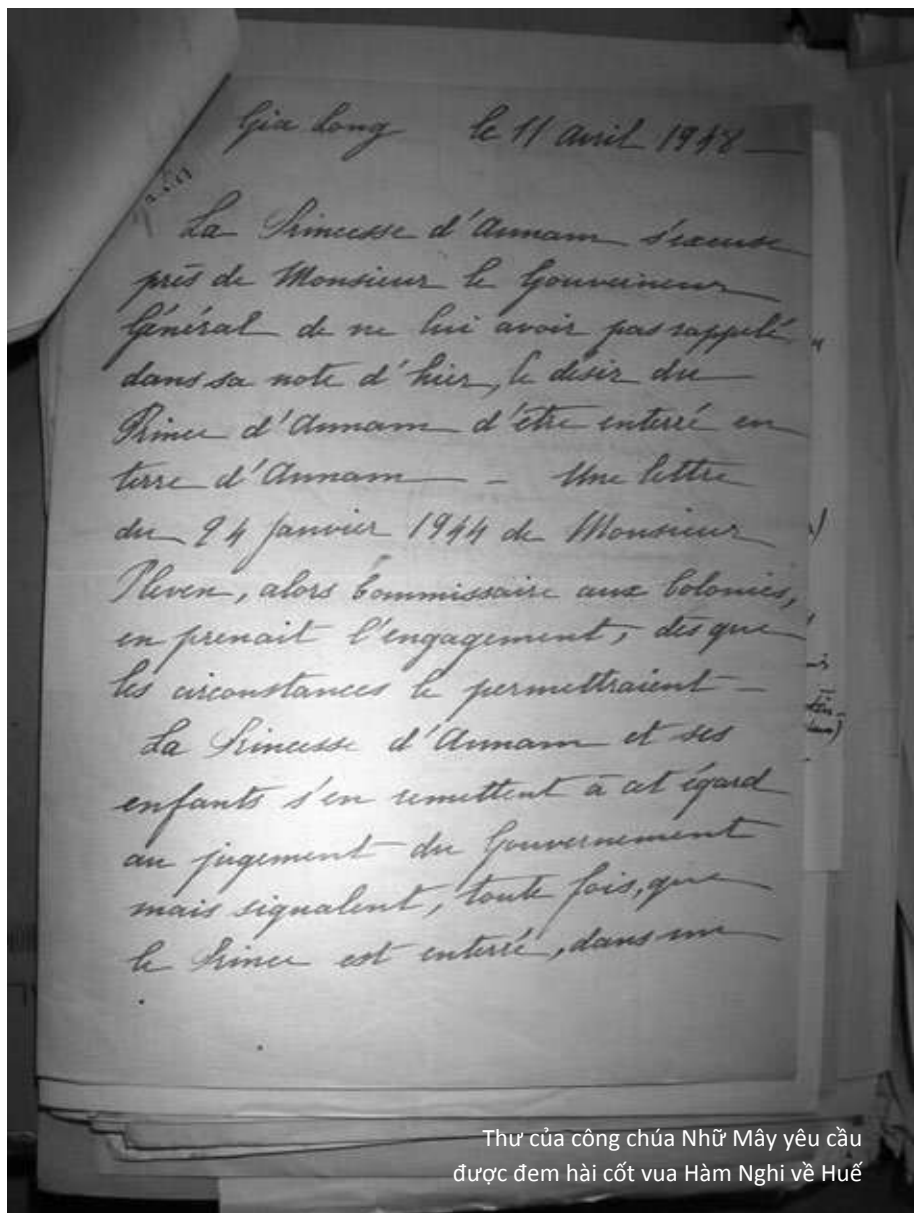 Gia Long le 11 Avril 1948 —
La Princesse d'Annam s'excuse
près de Monsieur le Gouverneur
Général de ne lui avoir pas rappelé
dans sa note d'hier, le désir du
Prince d'Annam d'être enterré en
terre d'Annam — Une lettre
du 24 Janvier 1944 de Monsieur
Pleven, alors Commissaire aux Colonies,
en prenait l'engagement, dès que
les circonstances le permettraient —
La Princesse d'Annam et ses
enfants s'en remettent à cet égard
au jugement du Gouvernement
mais signalent, toute fois, que
le Prince est enterré, dans un
Thư của công chúa Nhữ Mây yêu cầu
được đem hài cốt vua Hàm Nghi về Huế